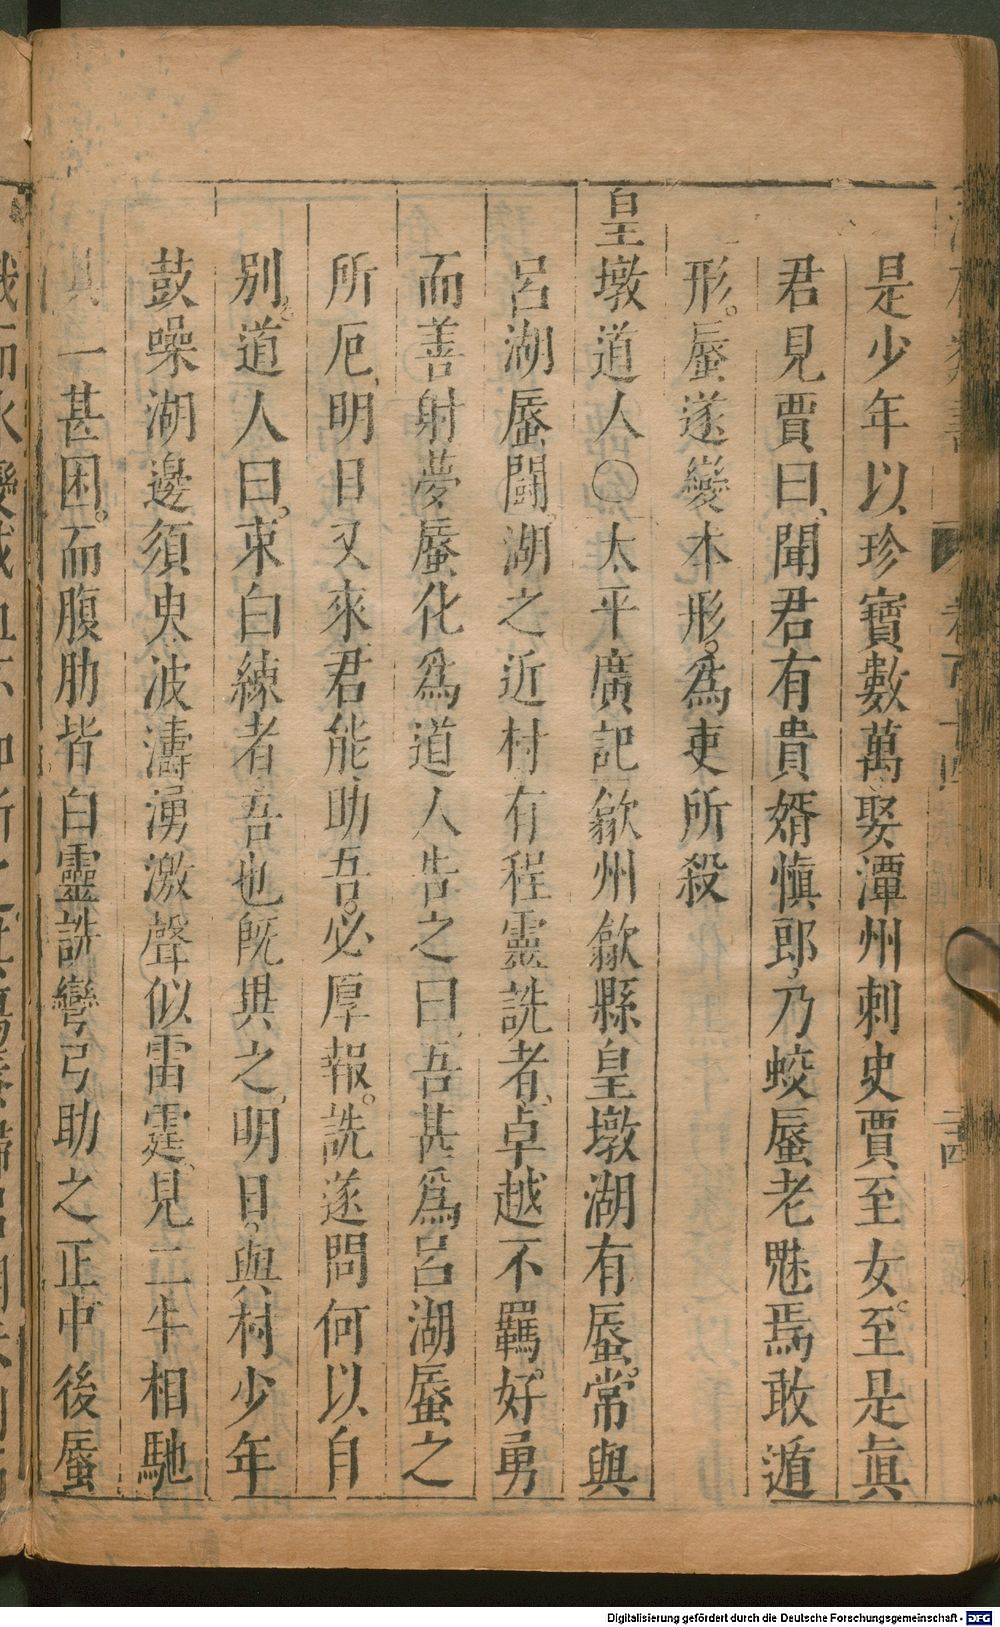 是少年以珍寶數萬娶潭州刺史賈至女。至是眞
君見賈曰、聞君有貴婿愼郎、乃蛟蜃老魅焉敢遁
形。蜃遂變本形。爲吏所殺
皇墩道人〇太平廣記歙州歙縣皇墩湖有蜃。常與
呂湖蜃鬪。湖之近村有程靈詵者、卓越不羈。好勇
而善射夢蜃化爲道人告之曰、吾甚爲呂湖蜃之
所厄、明日又來君能助吾。必厚報。詵遂問何以自
別、道人曰。束白練者吾也旣異之、明日。與村少年
鼓噪湖邊須臾波濤湧激聲似雷霆、見二牛相馳
其一甚困。而腹肋皆白靈詵彎弓助之正中後蜃
卷百十四
二四
Digitalisierung gefördert durch die Deutsche Forschungsgemeinschaft - DFG